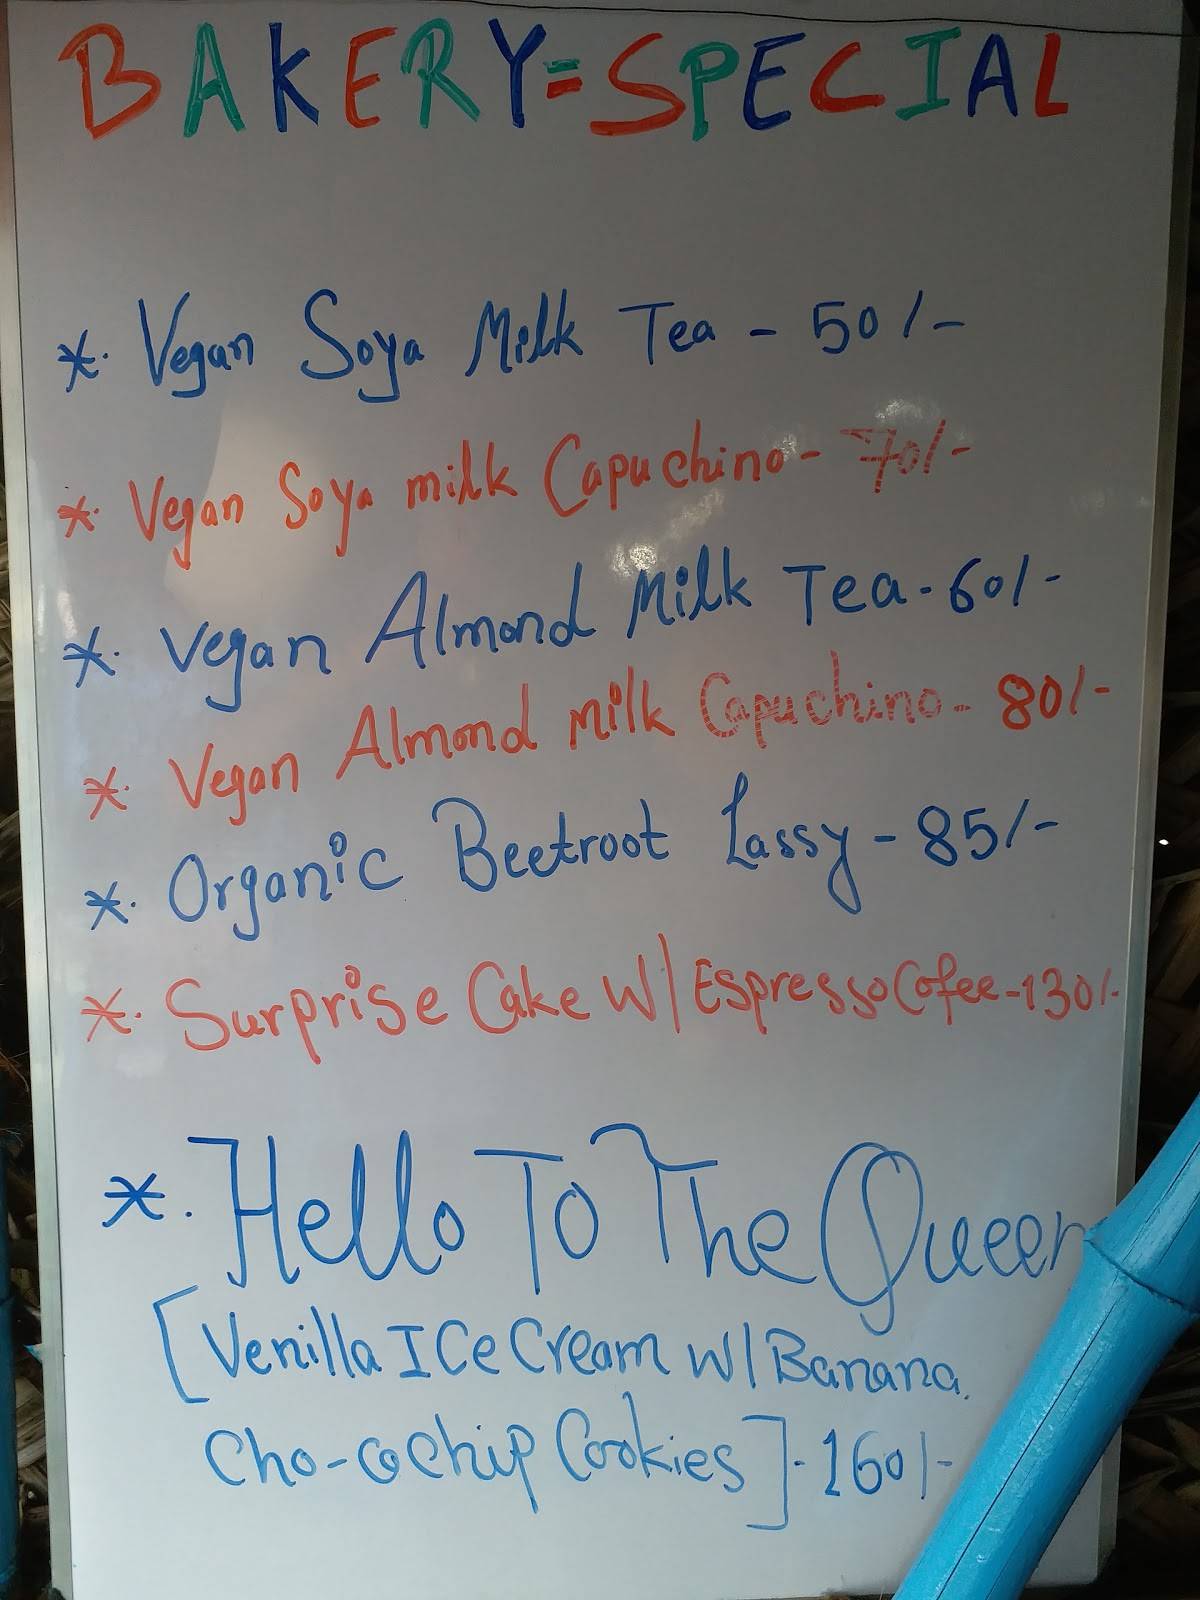 BAKERY=SPECIAL
*. Vegan Soya Milk Tea - 50/-
*. Vegan Soya milk Capuchino - 70/-
*. Vegan Almond Milk Tea - 60/-
*. Vegan Almond milk Capuchino - 80/-
*. Organic Beetroot Lassy - 85/-
*. Surprise Cake W/ Espresso Cofee - 130/-
*. Hello To The Queen
[Venilla ICe Cream W/ Banana.
Cho-Cochip Cookies]. 160/-